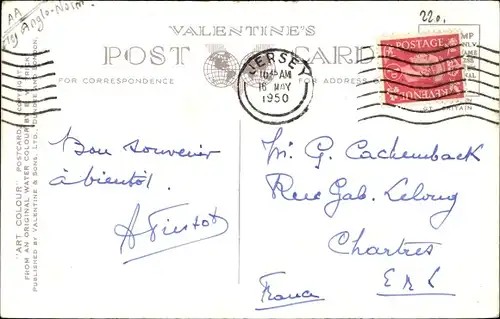 AA
Anglo-Norm
22o.
VALENTINE'S
POST CARD
FOR CORRESPONDENCE
FOR ADDRESS
JERSEY
10 15 AM
16 MAY
1950
POSTAGE
REVENUE
"ART COLOUR" POSTCARD
FROM AN ORIGINAL WATER COLOUR
PUBLISHED BY VALENTINE & SONS, LTD.
Bon souvenir
à bientôt.
Mr. G. Cachemback
Rue Gab. Lelong
Chartres
E & L
France